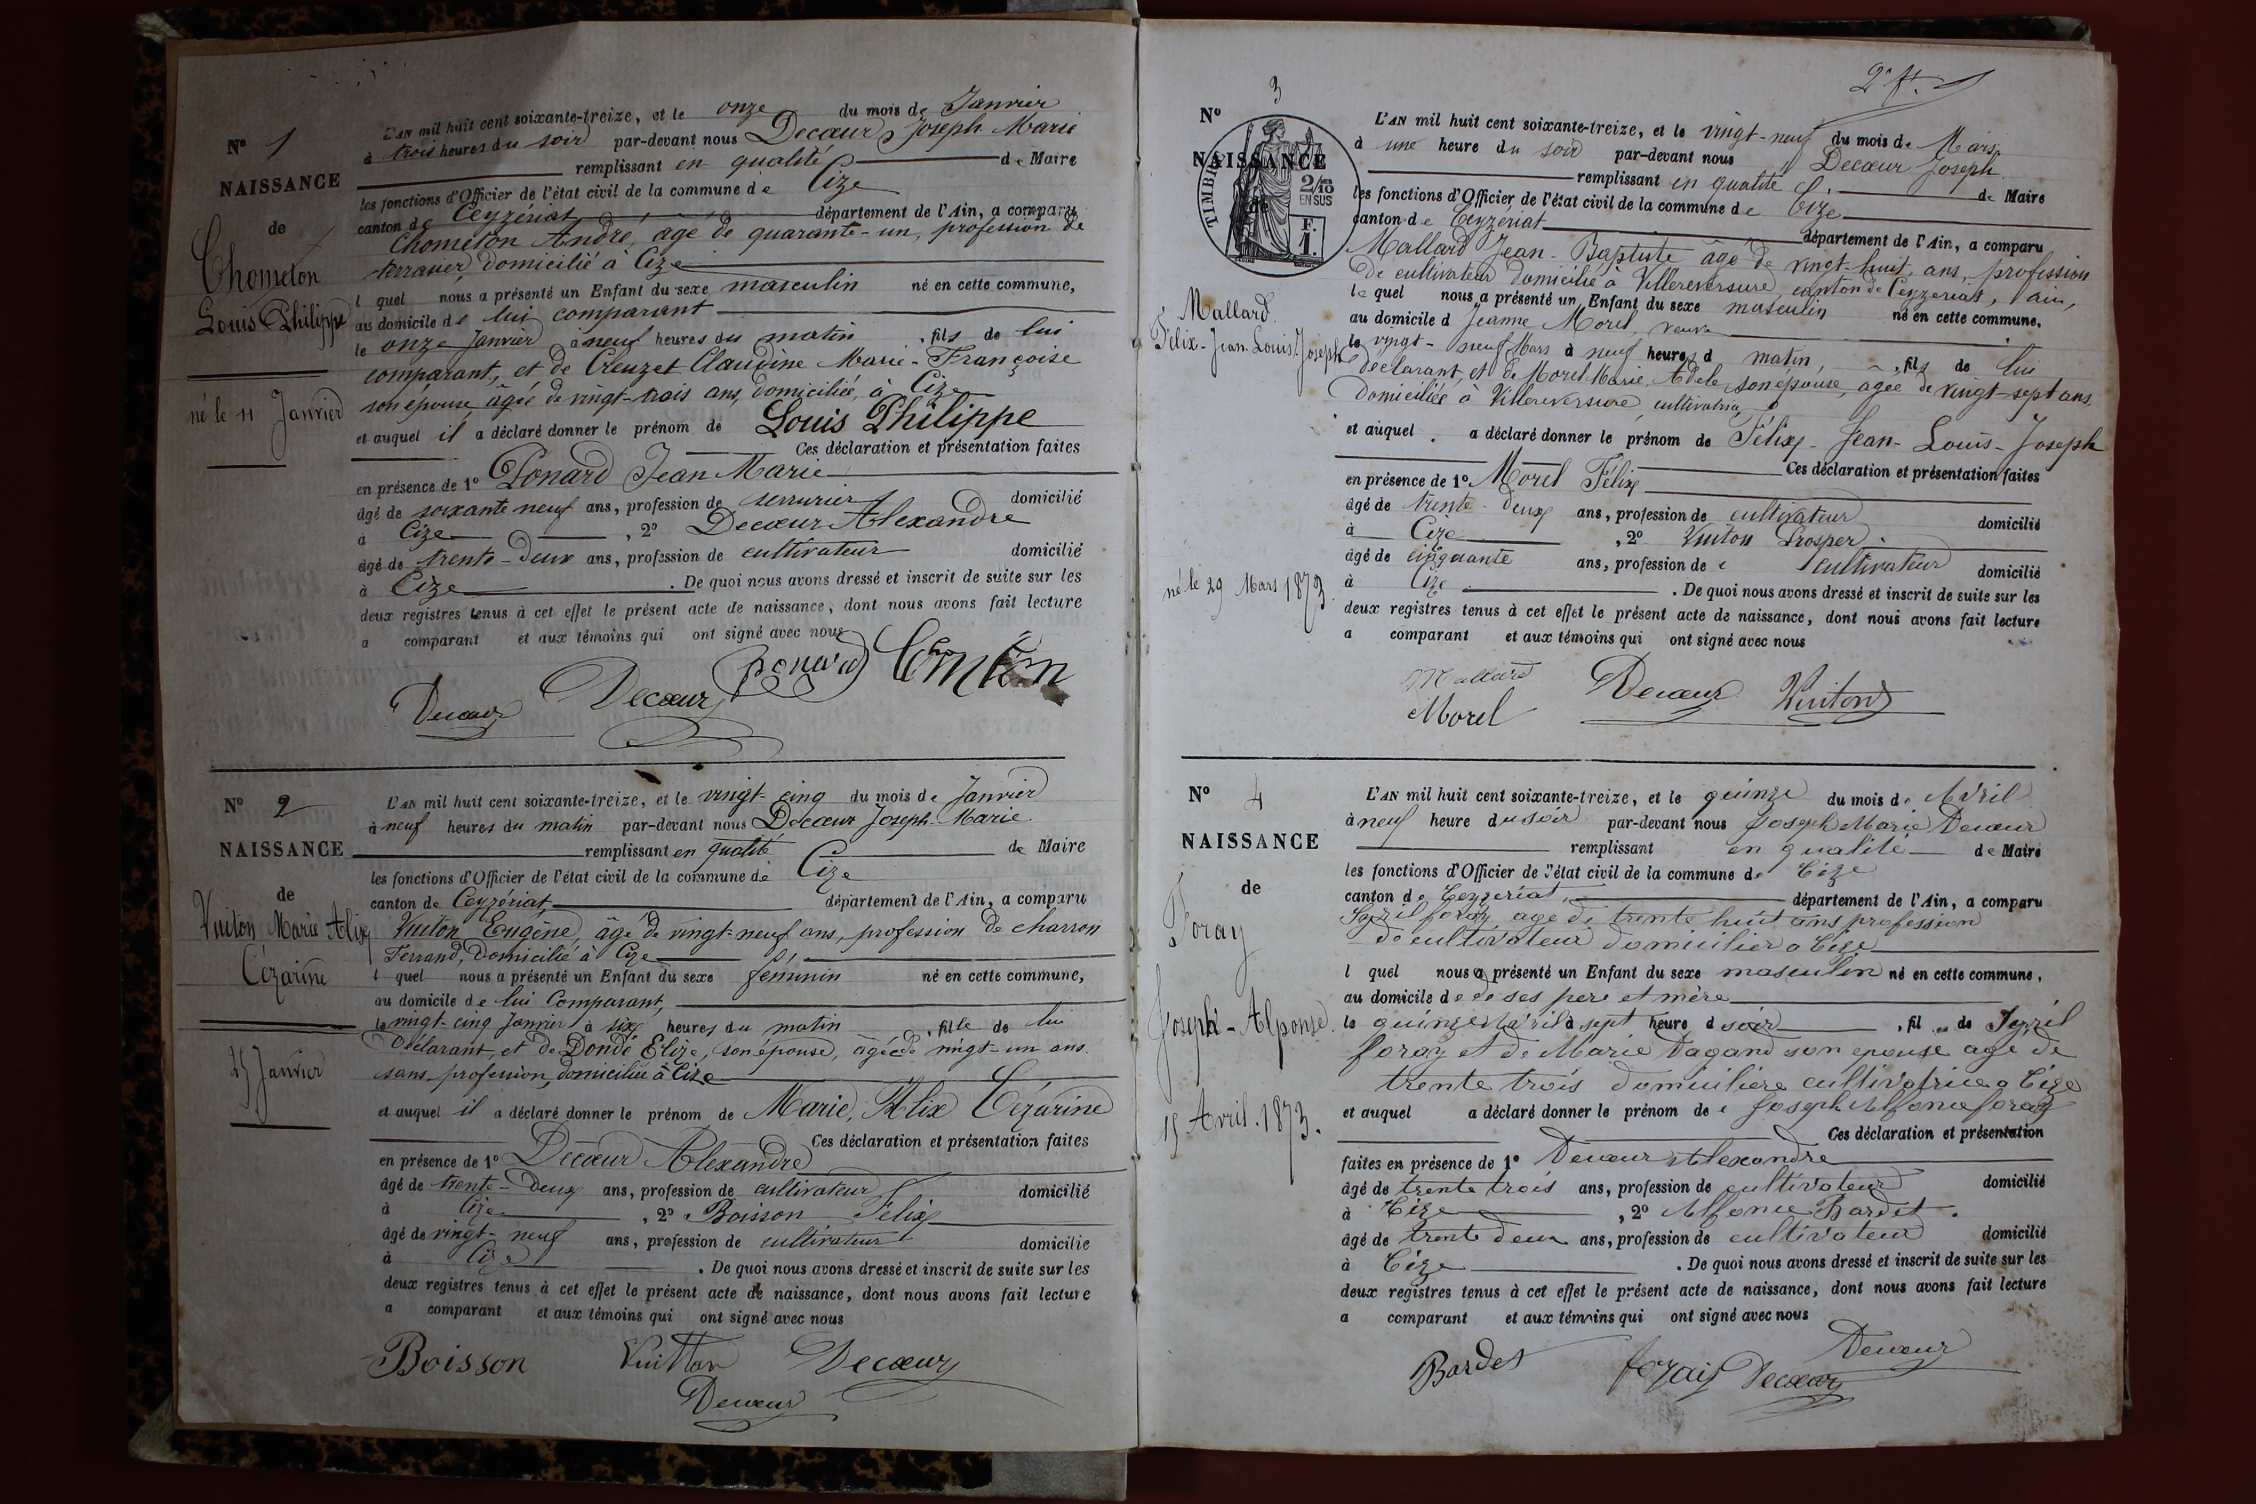 N° 1
NAISSANCE
de
Chometon
Louis Philippe
né le 11 Janvier
L'AN mil huit cent soixante-treize, et le onze du mois de Janvier
à trois heures du soir par-devant nous Decœur Joseph Marie
remplissant en qualité de Maire
les fonctions d'Officier de l'état civil de la commune de Cize
canton de Ceyzériat département de l'Ain, a comparu
Chometon André, âgé de quarante-un, profession de
terrasier, domicilié à Cize
l quel nous a présenté un Enfant du sexe masculin né en cette commune,
au domicile de lui comparant
le onze Janvier à neuf heures du matin, fils de lui
comparant, et de Creuzet Claudine Marie-Françoise
son épouse, âgée de vingt-trois ans, domiciliée, à Cize
et auquel il a déclaré donner le prénom de Louis Philippe
Ces déclaration et présentation faites
en présence de 1° Ponard Jean Marie
âgé de soixante neuf ans, profession de serrurier domicilié
à Cize, 2° Decœur Alexandre
âgé de trente-deux ans, profession de cultivateur domicilié
à Cize. De quoi nous avons dressé et inscrit de suite sur les
deux registres tenus à cet effet le présent acte de naissance, dont nous avons fait lecture
a comparant et aux témoins qui ont signé avec nous
ponard
Decœur Decœur
N° 2
NAISSANCE
de
Vuiton Marie Alix
Cézarine
25 Janvier
L'AN mil huit cent soixante-treize, et le vingt-cinq du mois de Janvier
à neuf heures du matin par-devant nous Decœur Joseph-Marie
remplissant en qualité de Maire
les fonctions d'Officier de l'état civil de la commune de Cize
canton de Ceyzériat département de l'Ain, a comparu
Vuiton Eugène, âgé de vingt-neuf ans, profession de charron
Ferrand, domicilié à Cize
l quel nous a présenté un Enfant du sexe féminin né en cette commune,
au domicile de lui Comparant,
le vingt-cinq Janvier à six heures du matin, fille de lui
Déclarant, et de Dondé Elize, son épouse, âgée de vingt-un ans
sans profession, domiciliée à Cize
et auquel il a déclaré donner le prénom de Marie, Alix Cézarine
Ces déclaration et présentation faites
en présence de 1° Decœur Alexandre
âgé de trente-deux ans, profession de cultivateur domicilié
à Cize, 2° Boisson Félix
âgé de vingt-neuf ans, profession de cultivateur domicilié
à Cize. De quoi nous avons dressé et inscrit de suite sur les
deux registres tenus à cet effet le présent acte de naissance, dont nous avons fait lecture
a comparant et aux témoins qui ont signé avec nous
Boisson Vuitton Decœur
Decœur
N° 3
NAISSANCE
de
TIMBRE
2/10
EN SUS
F.
1.
Mallard
Félix-Jean-Louis-Joseph
né le 29 Mars 1873.
L'AN mil huit cent soixante-treize, et le vingt-neuf du mois de Mars
à une heure du soir par-devant nous Decœur Joseph
remplissant en qualité de Maire
les fonctions d'Officier de l'état civil de la commune de Cize
canton de Ceyzériat département de l'Ain, a comparu
Mallard Jean-Baptiste âgé de vingt-huit ans, profession
De cultivateur domicilié à Villereversure, canton de Ceyzeriat, ain,
le quel nous a présenté un Enfant du sexe masculin né en cette commune,
au domicile d Jeanne Morel, veuve
le vingt-neuf Mars à neuf heures d matin, fils de lui
declarant, et de Morel Marie Adele, son épouse, agée de vingt-sept ans,
Domiciliée à Villereversure, cultivatrice
et auquel a déclaré donner le prénom de Félix-Jean-Louis-Joseph
Ces déclaration et présentation faites
en présence de 1° Morel Félix
âgé de trente-deux ans, profession de cultivateur domicilié
à Cize, 2° Vuiton Prosper
âgé de cinquante ans, profession de cultivateur domicilié
à Cize. De quoi nous avons dressé et inscrit de suite sur les
deux registres tenus à cet effet le présent acte de naissance, dont nous avons fait lecture
a comparant et aux témoins qui ont signé avec nous
Mallard Decœur Vuiton
Morel
N° 4
NAISSANCE
de
Foray
Joseph-Alponse.
15 Avril 1873.
L'AN mil huit cent soixante-treize, et le quinze du mois de Avril
à neuf heure du soir par-devant nous Joseph Marie Decœur
remplissant en qualité de Maire
les fonctions d'Officier de l'état civil de la commune de Cize
canton de Ceyzeriat département de l'Ain, a comparu
foray age de trente huit ans profession
de cultivateur domicilier a Cize
l quel nous a présenté un Enfant du sexe masculin né en cette commune,
au domicile de de ses pere et mère
le quinze Avril à sept heure d soir, fil de
foray et de Marie Dagand son epouse age de
trente trois domiciliere cultivatrice a Cize
et auquel a déclaré donner le prénom de Joseph Alfonce foray
Ces déclaration et présentation
faites en présence de 1° Decœur Alexandre
âgé de trente trois ans, profession de cultivateur domicilié
à Cize, 2° Alfonce Bardet.
âgé de trente deux ans, profession de cultivateur domicilié
à Cize. De quoi nous avons dressé et inscrit de suite sur les
deux registres tenus à cet effet le présent acte de naissance, dont nous avons fait lecture
a comparant et aux témoins qui ont signé avec nous
Decœur
Bardet foray Decœur